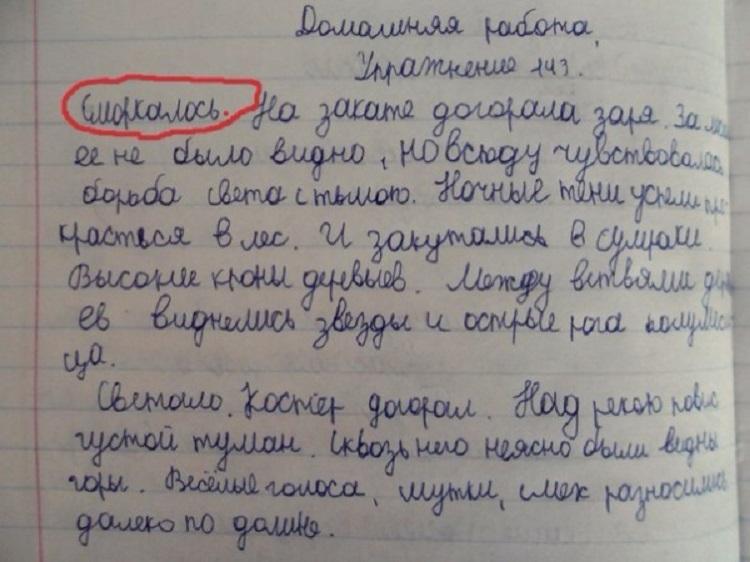 Домашняя работа.
Упражнение 143.
Сморкалось. На закате догорала заря. За
ее не было видно, но всюду чувствовалась
борьба света с тьмою. Ночные тени успели про-
красться в лес. И закутались в сумраки
Высокие кроны деревьев. Между ветвями дер
ев виднелись звезды и острые рога полумеся
ца.
Светало. Костёр догорал. Над рекою повис
густой туман. Сквозь него неясно были видны
горы. Весёлые голоса, шутки, смех разносились
далеко по долине.